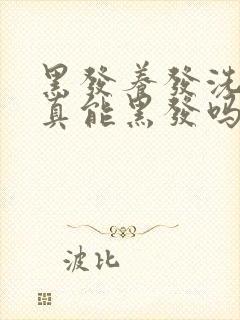 黑發養發洗
真能黑發吗
波比